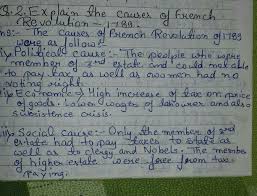 Q.2. Explain the causes of French
Revolution - 1789.
:- The causes of French Revolution of 1789
were as follow:
Political cause :- The people who were
member of 3rd estate and could not able
to pay tax as well as women had no
voting right.
Economic :- High increase of tax on price
of goods. Lower wages of labourer and also
subsistence crisis.
Social cause :- Only the member of 3rd
estate had to pay taxes to state as
well as to clergy and Nobels. The member
of higher estate were free from tax
paying.